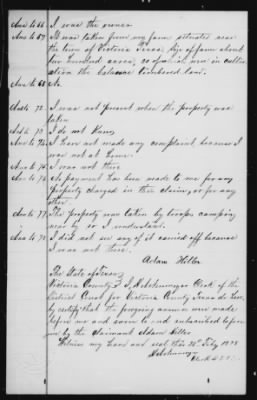 Ans to 66 I was the owner
Ans to 67 It was taken from my farm situated near
the town of Victoria Texas. Size of farm about
two hundred acres, 60 of which were in cultiv
ation the balance timbered land.
Ans to 68 No.
Ans to 72. I was not present when the property was
taken
Ans to 73 I do not know
Ans to 74 I have not made any complaint because I
was not at home.
Ans to 75 I was not there
Ans to 76 No payment has been made to me for any
property charged in this claim, or for any
other.
Ans to 77 The property was taken by troops camping
near by so I understand.
Ans to 78 I did not see any of it carried off because
I was not there.
Adam Hiller
The State of Texas
Victoria County I, Clerk of the
District Court for Victoria County Texas do here
by certify that the foregoing answers were made
before me and sworn to and subscribed before
me by the claimant Adam Hiller
Witness my hand and seal this July 1878